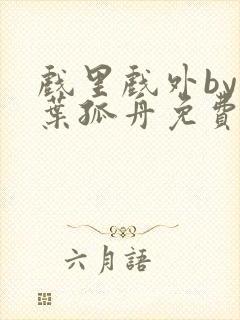 戲里戲外by
葉孤舟免費
六月語